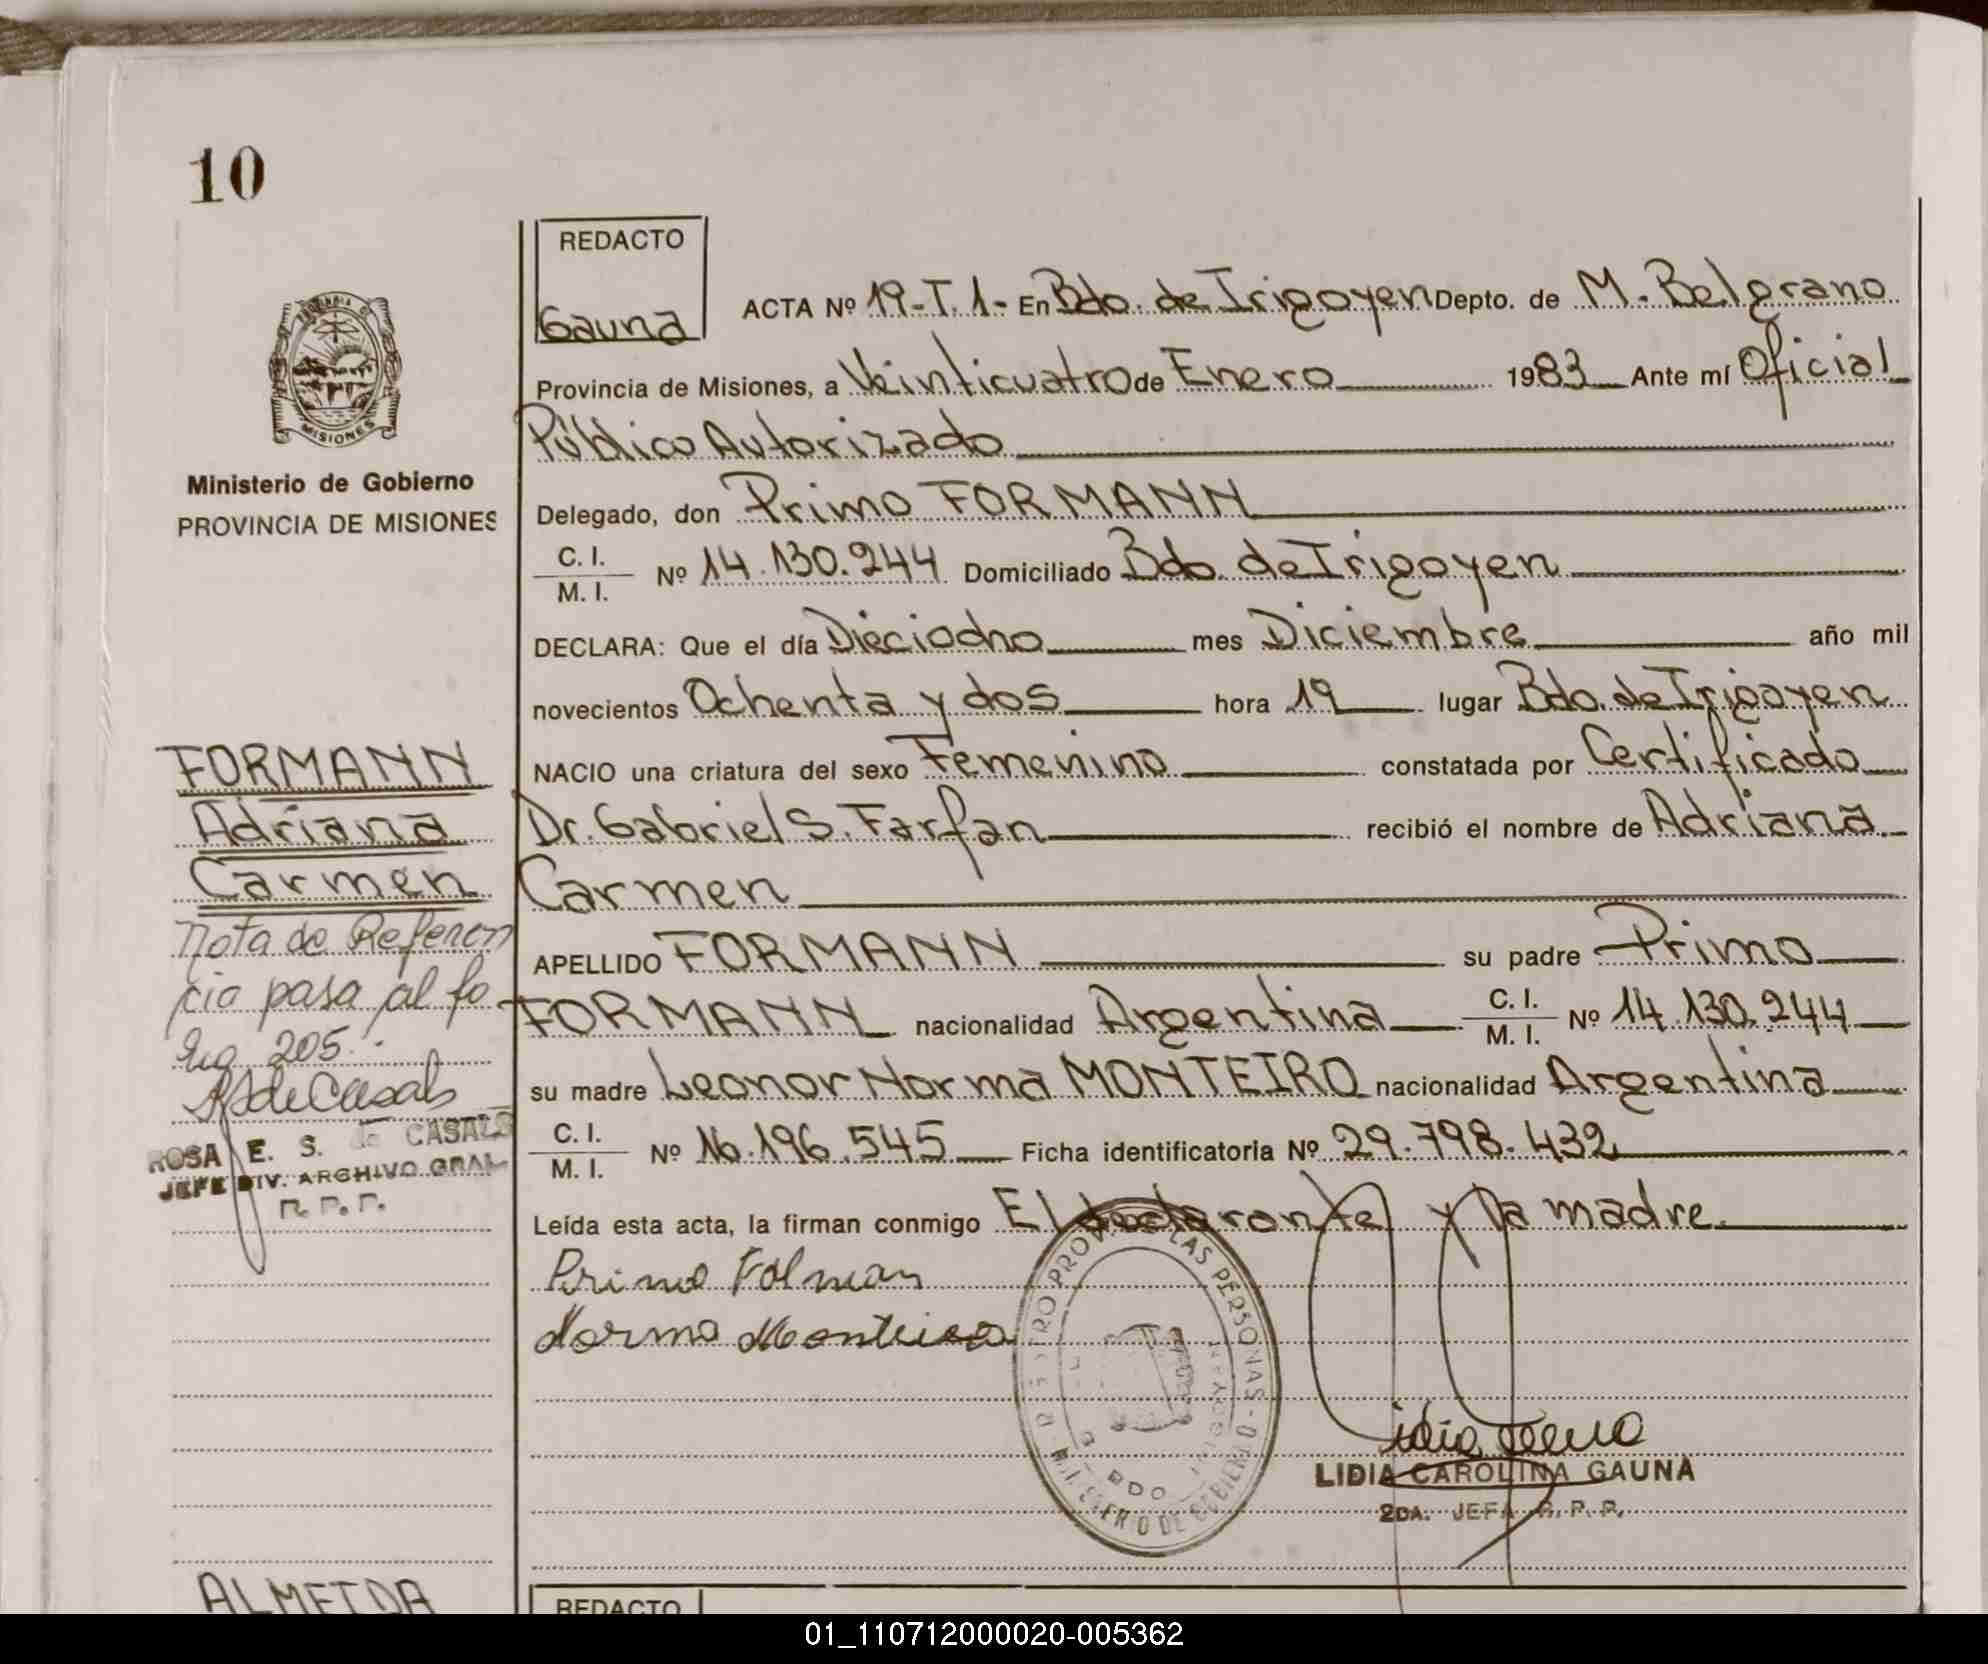 10
REDACTO
Gauna
ACTA Nº 19-T.1- En Bdo. de Irigoyen Depto. de M. Belgrano
Provincia de Misiones, a Veinticuatro de Enero 1983 Ante mí Oficial
Público Autorizado
Delegado, don Primo FORMANN
C. I.
M. I. Nº 14.130.244 Domiciliado Bdo. de Irigoyen
DECLARA: Que el día Dieciocho mes Diciembre año mil
novecientos Ochenta y dos hora 19 lugar Bdo. de Irigoyen
NACIO una criatura del sexo Femenino constatada por Certificado
Dr. Gabriel S. Farfan recibió el nombre de Adriana
Carmen
APELLIDO FORMANN su padre Primo
FORMANN nacionalidad Argentina C. I.
M. I. Nº 14.130.244
su madre Leonor Norma MONTEIRO nacionalidad Argentina
C. I.
M. I. Nº 16.196.545 Ficha identificatoria Nº 29.798.432
Leída esta acta, la firman conmigo El declarante y la madre
Primo Folman
Norma Monteiro
LIDIA CAROLINA GAUNA
2DA. JEFA R. P. P.
MISIONES
Ministerio de Gobierno
PROVINCIA DE MISIONES
FORMANN
Adriana
Carmen
Nota de Referen
cia pasa al fo
lio 205.
RSdeCasals
ROSA E. S. de CASALS
JEFE DIV. ARCHIVO GRAL
R. P. P.
REGISTRO PROV. DE LAS PERSONAS
MINISTERIO DE GOBIERNO
BDO
ALMEIDA
REDACTO
01_110712000020-005362